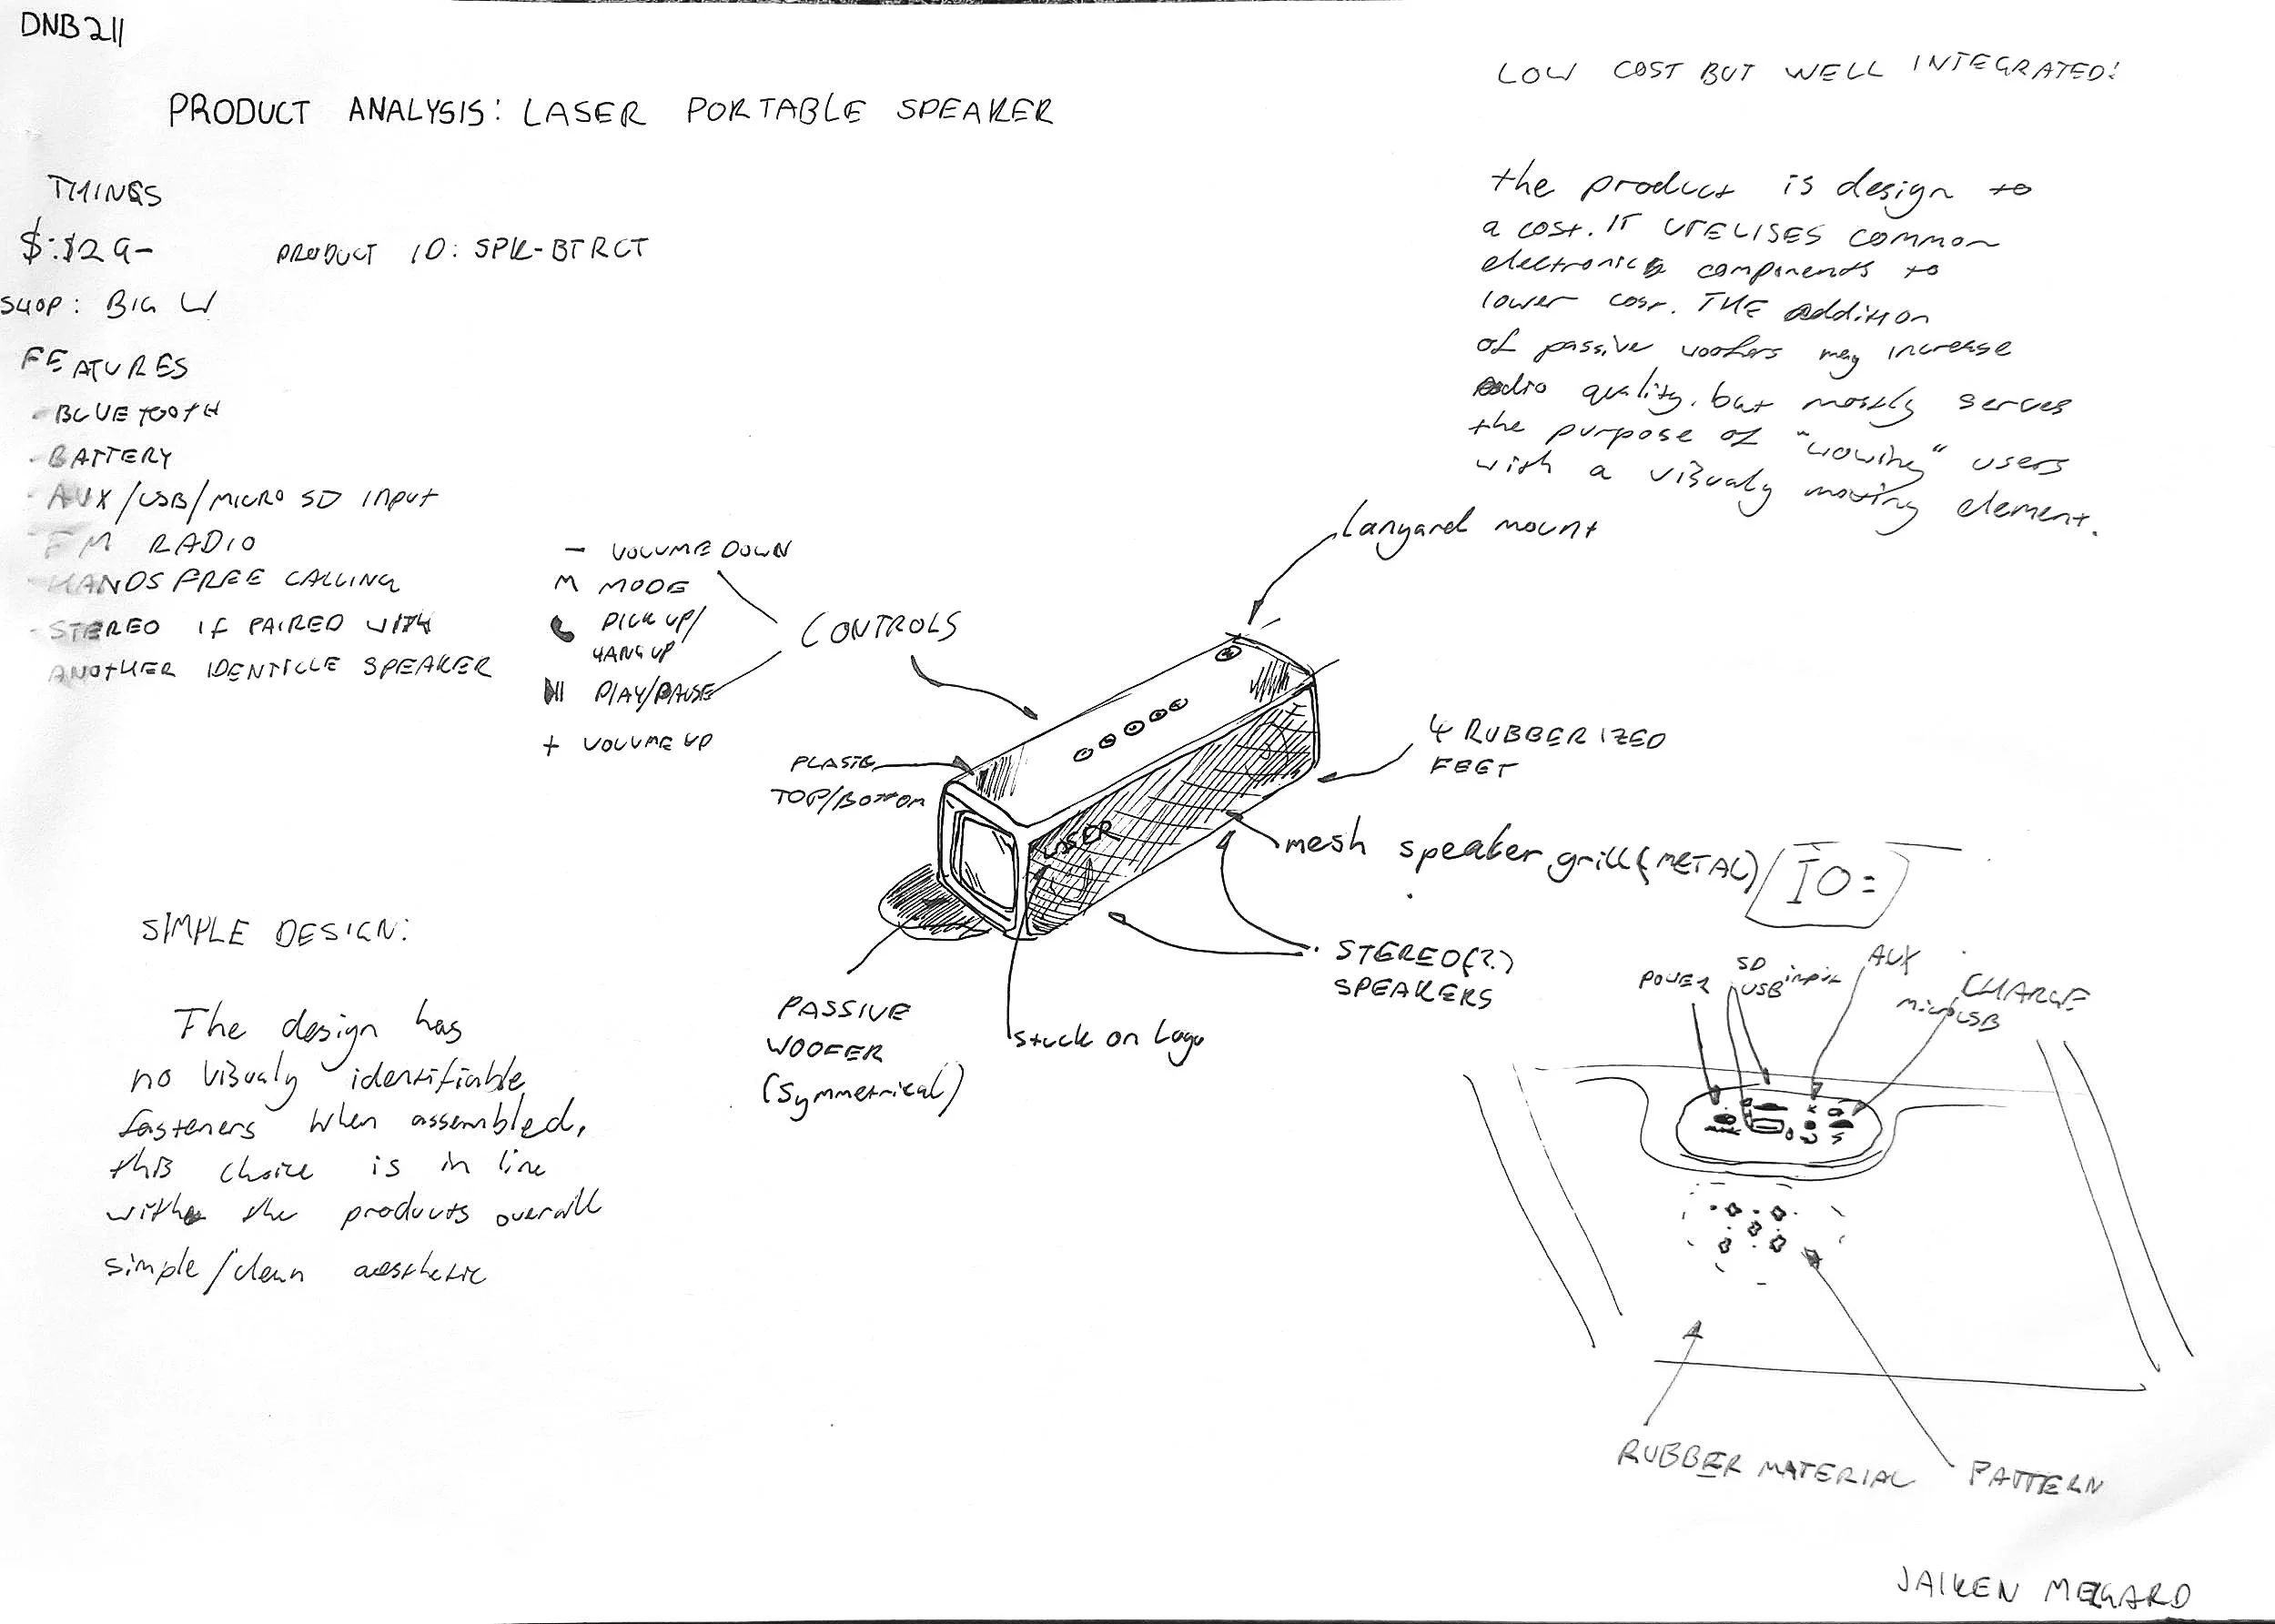 DNB211
PRODUCT ANALYSIS: LASER PORTABLE SPEAKER
THINGS
$:$29-
PRODUCT ID: SPK-BTRCT
SHOP: BIG W
FEATURES
- BLUETOOTH
- BATTERY
- AUX/USB/MICRO SD INPUT
- FM RADIO
- HANDS FREE CALLING
- STEREO IF PAIRED WITH
ANOTHER IDENTICLE SPEAKER
LOW COST BUT WELL INTEGRATED:
the product is design to
a cost. IT UTELISES COMMON
electronics components to
lower cost. THE addition
of passive woofers may increase
audio quality. but mostly serves
the purpose of "wowing" users
with a visualy moving element.
Lanyard mount
- VOLUME DOWN
M MODE
PICK UP/
HANG UP
PLAY/PAUSE
+ VOLUME UP
CONTROLS
PLASTIC
TOP/BOTTOM
4 RUBBERIZED
FEET
LASER
mesh speaker grill (METAL)
IO:
STEREO(2.)
SPEAKERS
PASSIVE
WOOFER
(Symmetrical)
stuck on logo
SIMPLE DESIGN:
The design has
no visualy identifiable
fasteners when assembled,
this choice is in line
with the products overall
simple/clean aesthetic
POWER
SD
USB input
AUX
CHARGE
Micro USB
RUBBER MATERIAL
PATTERN
JAIKEN MEGARD